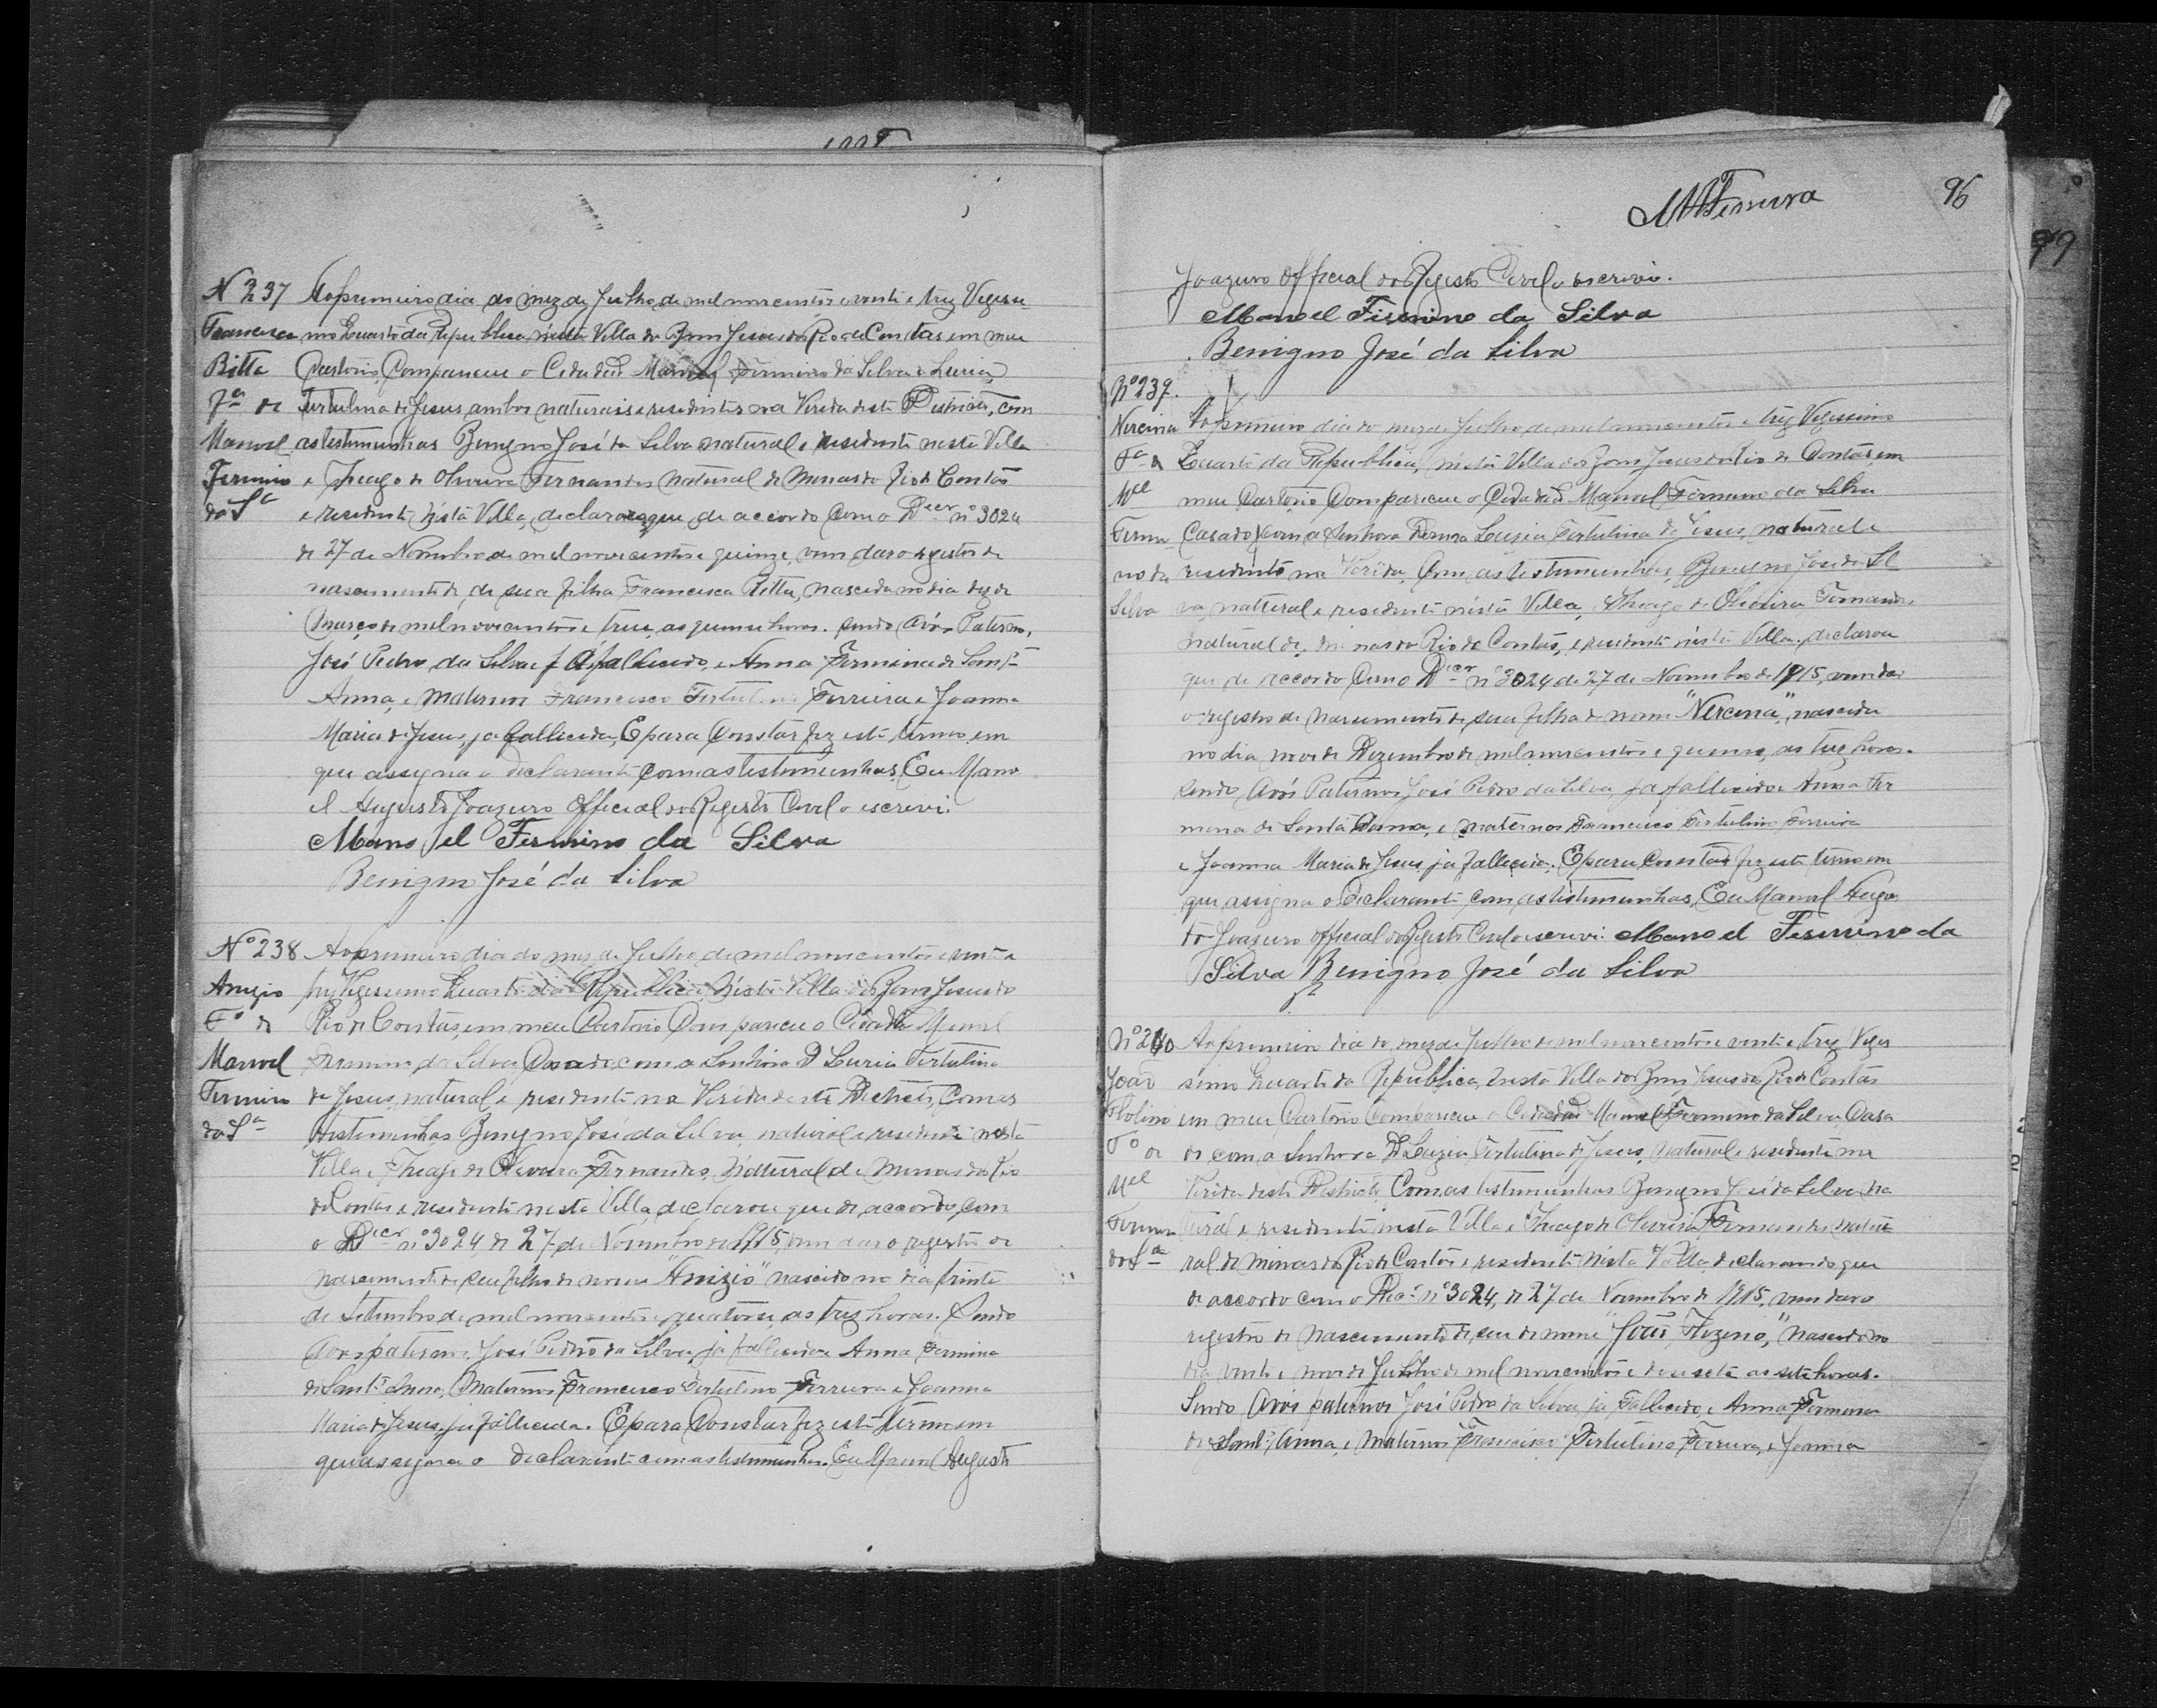 1995
Nº 237 Ao primeiro dia do mez de Julho de mil novecentos e vinte e trez Vigesi-
Francisca mo Quarto da Republica, nésta Villa do Bom Jesus do Rio de Contas em meu
Ritta Cartorio, Compareceu o Cidadão Manoel Firmino da Silva e Luzia
Fª de Tertulina de Jesus, ambos naturais e residentes na Vereda deste Districto, com
Manoel as testimunhas Benigno José da Silva natural e residente nesta Villa
Fermino e Thiago de Oliveira Fernandes natural de Minas do Rio de Contas
da Sª e residente nésta Villa, declarou que, de accordo com o Decr nº 3024
de 27 de Novembro de mil novecentos e quinze, vem dar o registro de
nascimento de, de sua filha Francisca Ritta, nascida no dia dez de
Março de mil novecentos e treze, as quinse horas. sendo Avós Paternos,
José Pedro da Silva já fallecido, e Anna Fermina de Sant'
Anna, e Maternos Francisco Tertulino Ferreira e Joanna
Maria de Jesus, ja fallecida, E para Constar fiz este termo em
que assigna o declarante com as testimunhas, Eu Mano
el Augusto Joazeiro Official do Registro Civel o escrevi.
Manoel Fermino da Silva
Benigno José da Silva
Nº 238 Ao primeiro dia do mez de Julho de mil novecentos e vinte e
Anizio trez Vigessimo Quarto da Republica, Nésta Villa do Bom Jesus do
Fº de Rio de Contas, em meu Cartorio Compareceu o Cidadão Manoel
Manoel Firmino da Silva Casado com a Senhora D Luzia Tertulina
Fermino de Jesus, natural e residente na Vereda deste Districto, Com as
da Sª testimunhas Benigno José da Silva, natural e residente nesta
Villa e Thiago de Oliveira Fernandes, Natural de Minas do Rio
de Contas e residente nesta Villa declarou que de accordo com
o Decr nº 3024 de 27 de Novembro de 1915, vem dar o registro de
nascimento de seu filho de nome "Anizio" nascido no dia trinta
de Setembro de mil novecentos e quatorze, as trez horas. Sendo
Avos paternos, José Pedro da Silva, já fallecido e Anna Fermina
de Sant' Anna, Maternos Francisco Tertulino Ferreira e Joanna
Maria de Jesus, já fallecida. E para Constar fiz este termo em
que assigna o declarante com as testimunhas. Eu Manoel Augusto
MAFerreira
96
99
Joazeiro Official do Registo Civel o escrevi.
Manoel Firmino da Silva
Benigno José da Silva
Nº 239.
Nercina Ao primeiro dia do mez de Julho de mil novecentos e trez Vigessimo
Fª de Quarto da Republica, nésta Villa do Bom Jesus do Rio de Contas, em
Mel meu Cartorio Compareceu o Cidadão Manoel Firmino da Silva
Firmi- Casado com a Senhora Dona Luzia Tertulina de Jesus, natural e
no da residente na Vereda, Com as testimunhas, Benigno José da Sil
Silva va, natural e residente nésta Villa, e Thiago de Oliveira Fernandes
natural de Minas do Rio de Contas, e residente nésta Villa, declarou
que de accordo com o Decr nº 3024 de 27 de Novembro de 1915, vem dar
o registro de nascimento de sua filha de nome "Nercina", nascida
no dia nove de Dezembro de mil novecentos e quinse, as trez horas.
Sendo Avós Paternos José Pedro da Silva, já fallecido e Anna Fer
mina de Santa Anna, e maternos Francisco Tertulino Ferreira
e Joanna Maria de Jesus, já fallecida. E para Constar fiz este termo em
que assigna o declarante com as testimunhas, Eu Manoel Augus
to Joazeiro Official do Registo Civel o escrevi. Manoel Fermino da
Silva Benigno José da Silva
Nº 240 Ao primeiro dia do mez de Julho de mil novecentos e vinte e trez Viges
João simo Quarto da Republica, Nésta Villa do Bom Jesus do Rio de Contas
em meu Cartorio Compareceu o Cidadão Manoel Firmino da Silva, Casa
Fº de do com a Senhora D Luzia Tertulina de Jesus, Natural e residente na
Mel Vereda deste Districto, Com as testimunhas Benigno José da Silva, na
Firmino tural e residente nésta Villa e Thiago de Oliveira Fernandes natu
da Sª ral de Minas do Rio de Contas e residente Nésta Villa, declarando que
de accordo com o Decr nº 3024, de 27 de Novembro de 1915, vem dar o
registro de nascimento de seu de nome "João , " nascido no
dia vinte e nove de Julho de mil novecentos e desesete as sete horas.
Sendo Avós paternos José Pedro da Silva, já Fallecido, e Anna Fermina
de Sant' Anna, e Maternos Francisco Tertulino Ferreira, e Joanna